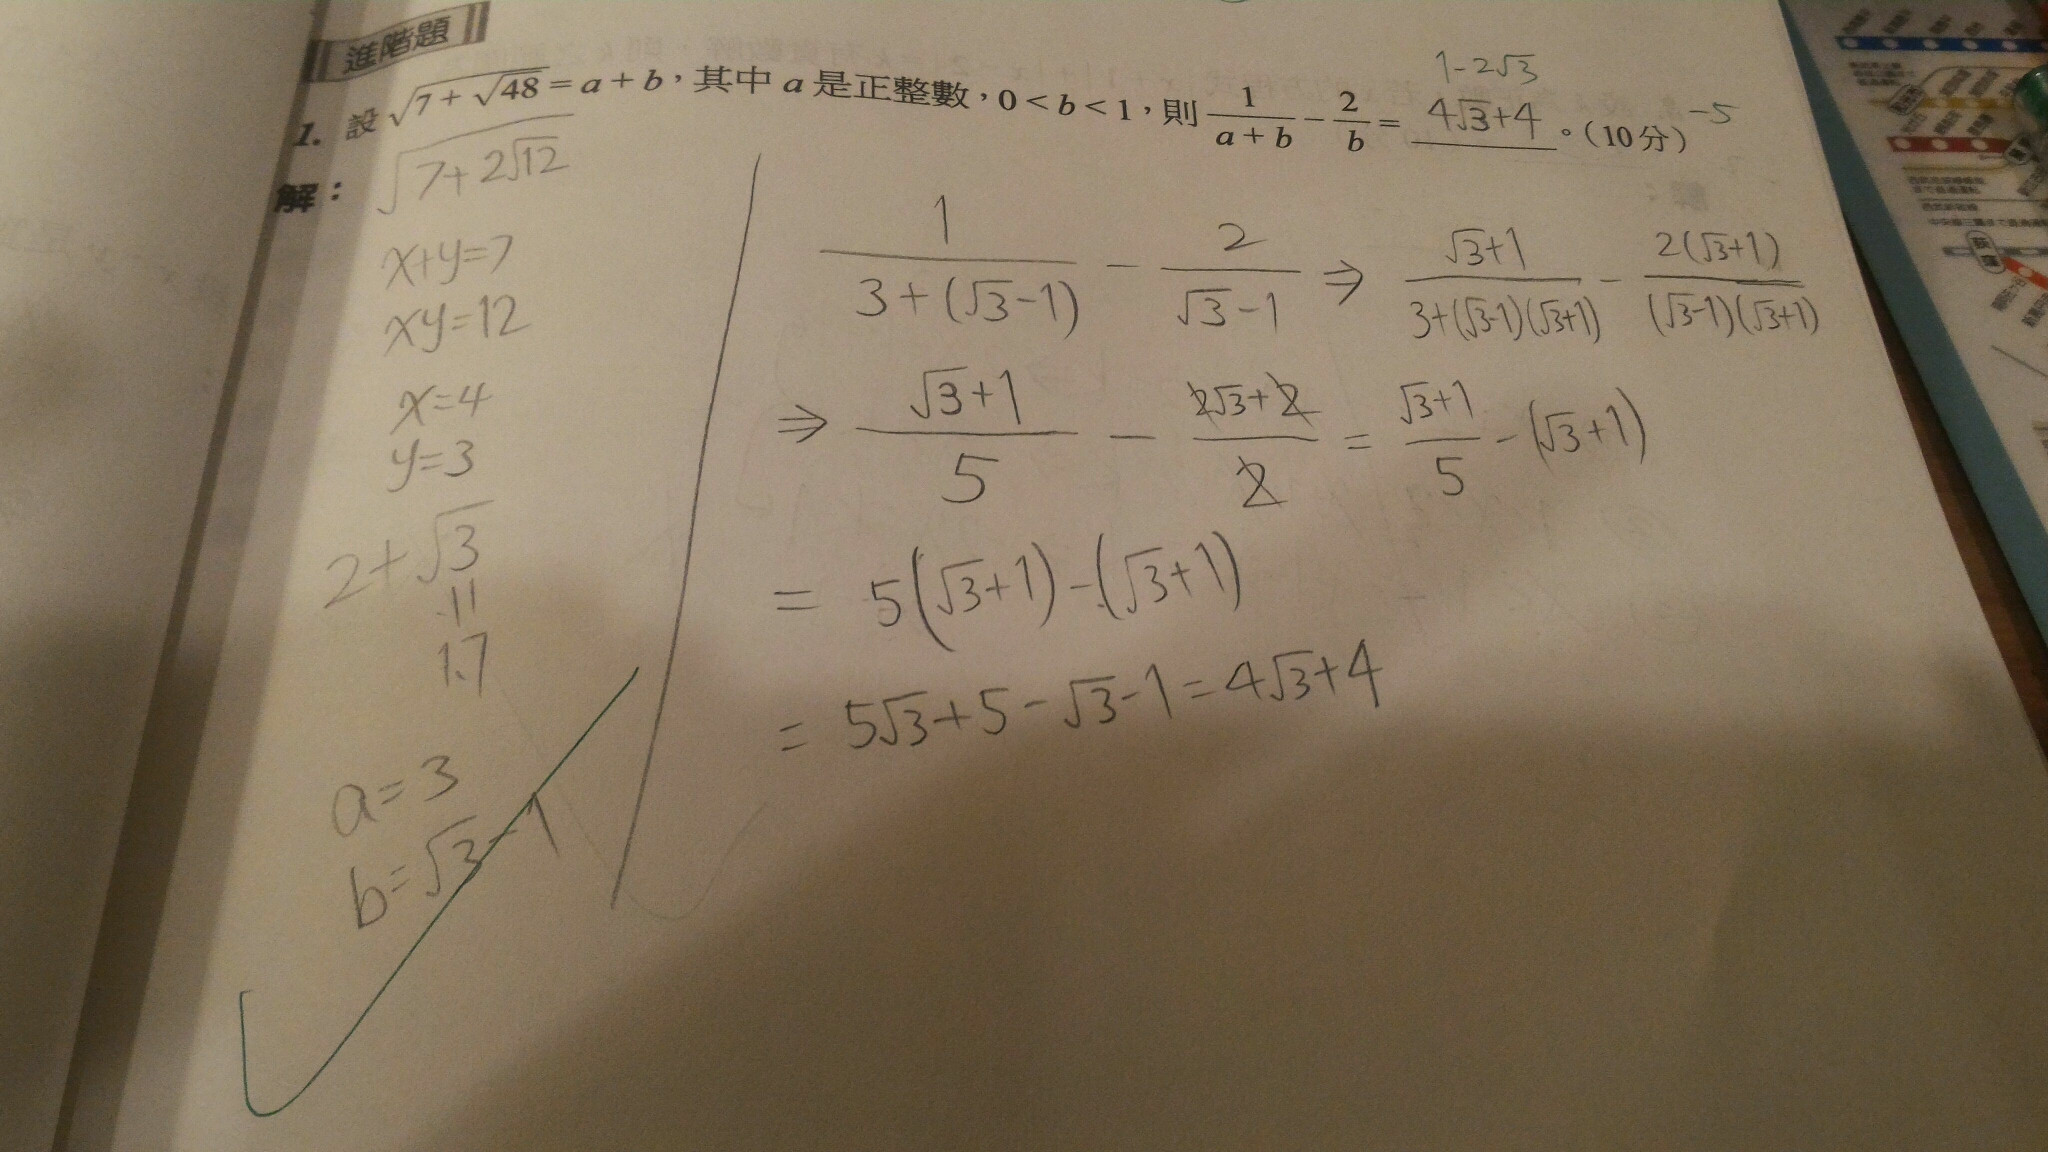 進階題
1. 設 √(7+√48) = a + b，其中 a 是正整數，0 < b < 1，則 1/(a+b) − 2/b = 4√3+4。(10分) -5
1-2√3
解：
√(7+2√12)
x+y=7
xy=12
x=4
y=3
2+√3
1.7
a=3
b=√3-1
1/(3+(√3-1)) - 2/(√3-1) ⇒ (√3+1)/(3+(√3-1)(√3+1)) - 2(√3+1)/((√3-1)(√3+1))
⇒ (√3+1)/5 - (2√3+2)/2 = (√3+1)/5 - (√3+1)
= 5(√3+1)-(√3+1)
= 5√3+5-√3-1=4√3+4